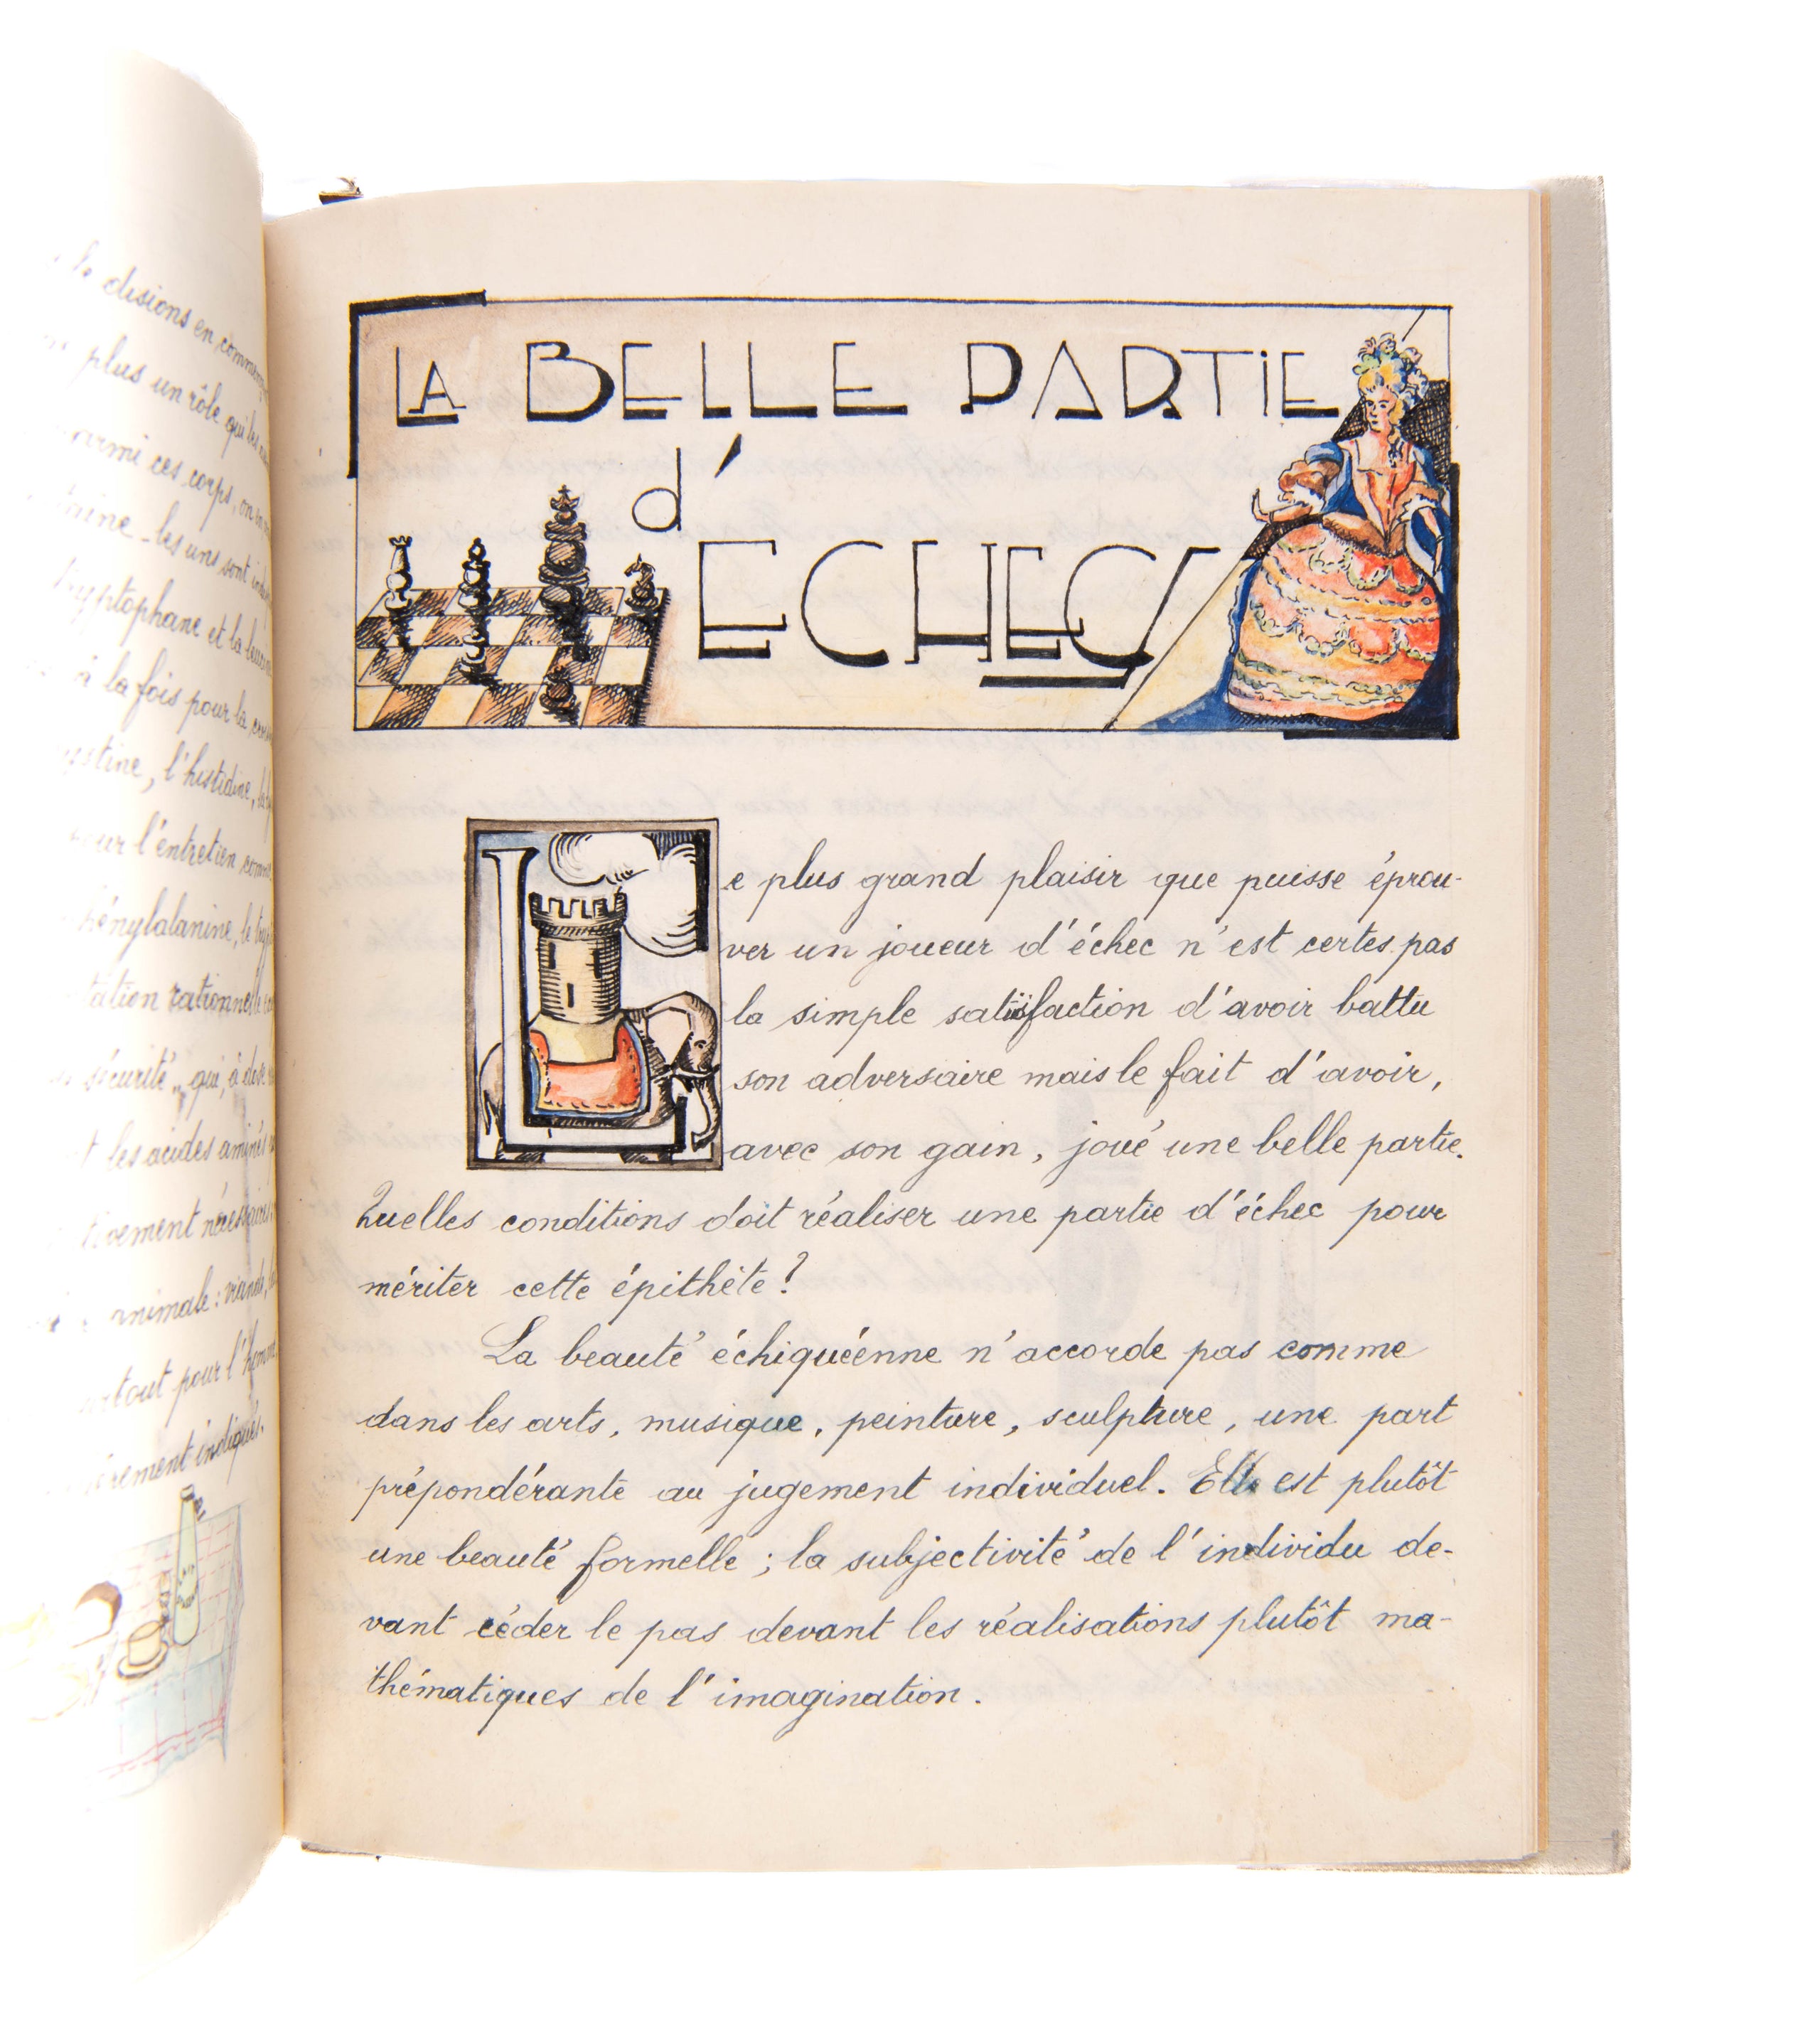 disions en
plus un rôle qui les
ces corps, on
les uns sont
tryptophane et la
à la fois pour la
l'histidine,
l'entretien
le
rationnelle
sécurité„ qui, à
les acides aminés

animale : viande,
pour l'homme
indiqués.
LA BELLE PARTiE
d'
ECHECS
Le plus grand plaisir que puisse éprou-
ver un joueur d'échec n'est certes pas
la simple satisfaction d'avoir battu
son adversaire mais le fait d'avoir,
avec son gain, joué une belle partie.
Quelles conditions doit réaliser une partie d'échec pour
mériter cette épithète ?
La beauté échiquéenne n'accorde pas comme
dans les arts, musique, peinture, sculpture, une part
prépondérante au jugement individuel. Elle est plutôt
une beauté formelle ; la subjectivité de l'individu de-
vant céder le pas devant les réalisations plutôt ma-
thématiques de l'imagination.